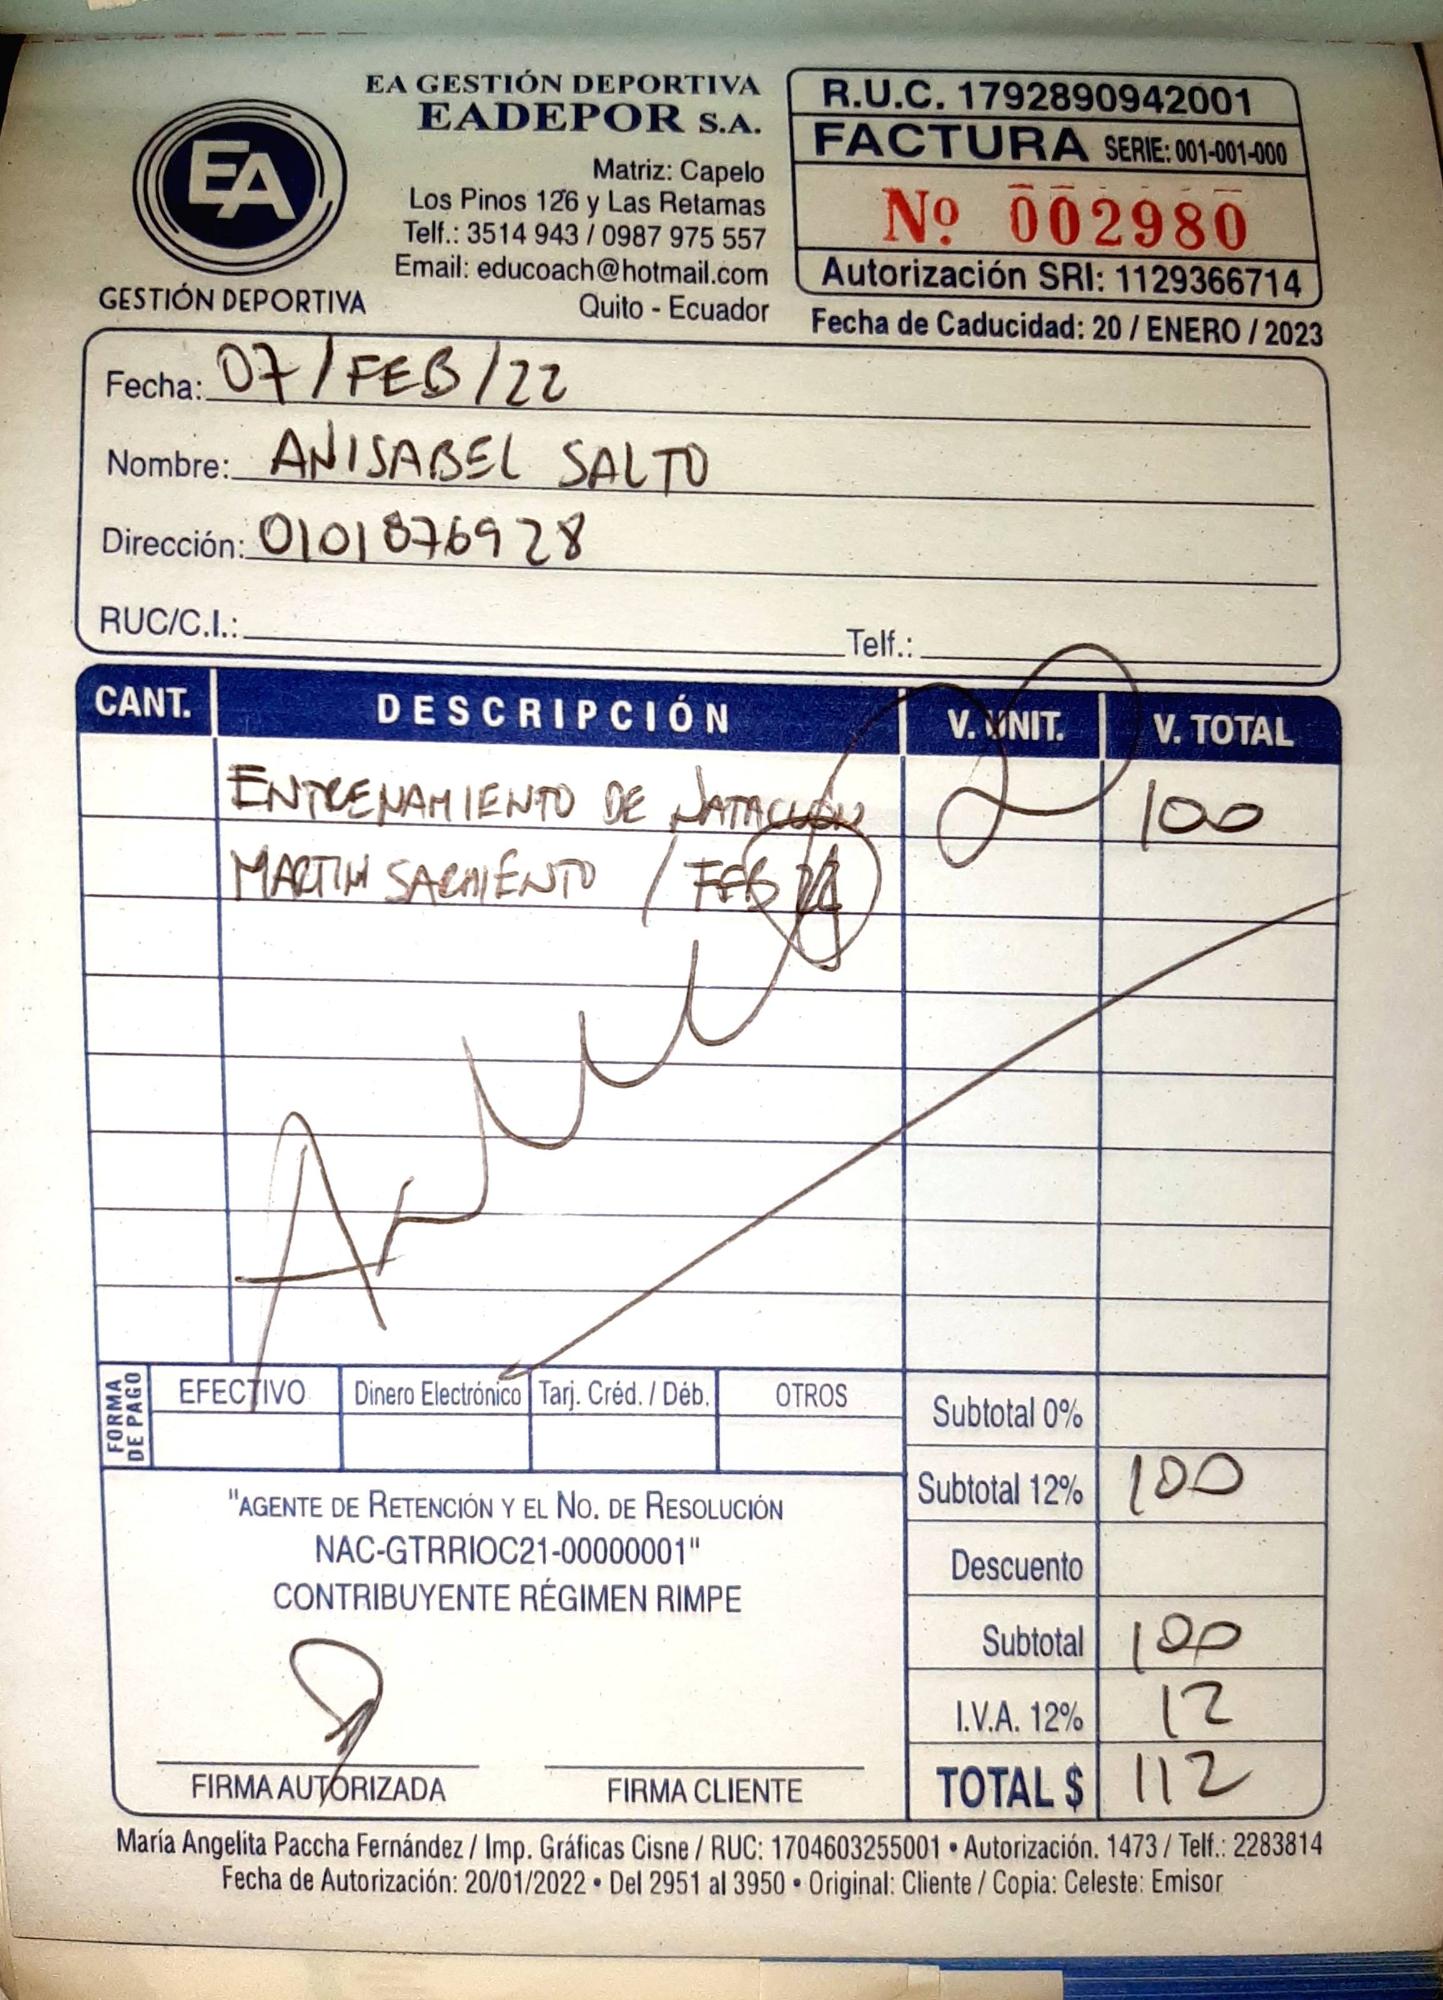 EA GESTIÓN DEPORTIVA
EADEPOR S.A.
Matriz: Capelo
Los Pinos 126 y Las Retamas
Telf.: 3514 943 / 0987 975 557
Email: educoach@hotmail.com
Quito - Ecuador
EA
GESTIÓN DEPORTIVA
R.U.C. 1792890942001
FACTURA SERIE: 001-001-000
Nº 002980
Autorización SRI: 1129366714
Fecha de Caducidad: 20 / ENERO / 2023
Fecha: 07/FEB/22
Nombre: ANISABEL SALTO
Dirección: 0101876928
RUC/C.I.: Telf.:
CANT. DESCRIPCIÓN V. UNIT. V. TOTAL
ENTRENAMIENTO DE NATACIÓN 100
MARTIN SARMIENTO / FEB
FORMA DE PAGO
EFECTIVO Dinero Electrónico Tarj. Créd. / Déb. OTROS
Subtotal 0%
Subtotal 12% 100
Descuento
Subtotal 100
I.V.A. 12% 12
TOTAL $ 112
"AGENTE DE RETENCIÓN Y EL NO. DE RESOLUCIÓN
NAC-GTRRIOC21-00000001"
CONTRIBUYENTE RÉGIMEN RIMPE
FIRMA AUTORIZADA FIRMA CLIENTE
María Angelita Paccha Fernández / Imp. Gráficas Cisne / RUC: 1704603255001 • Autorización. 1473 / Telf.: 2283814
Fecha de Autorización: 20/01/2022 • Del 2951 al 3950 • Original: Cliente / Copia: Celeste: Emisor